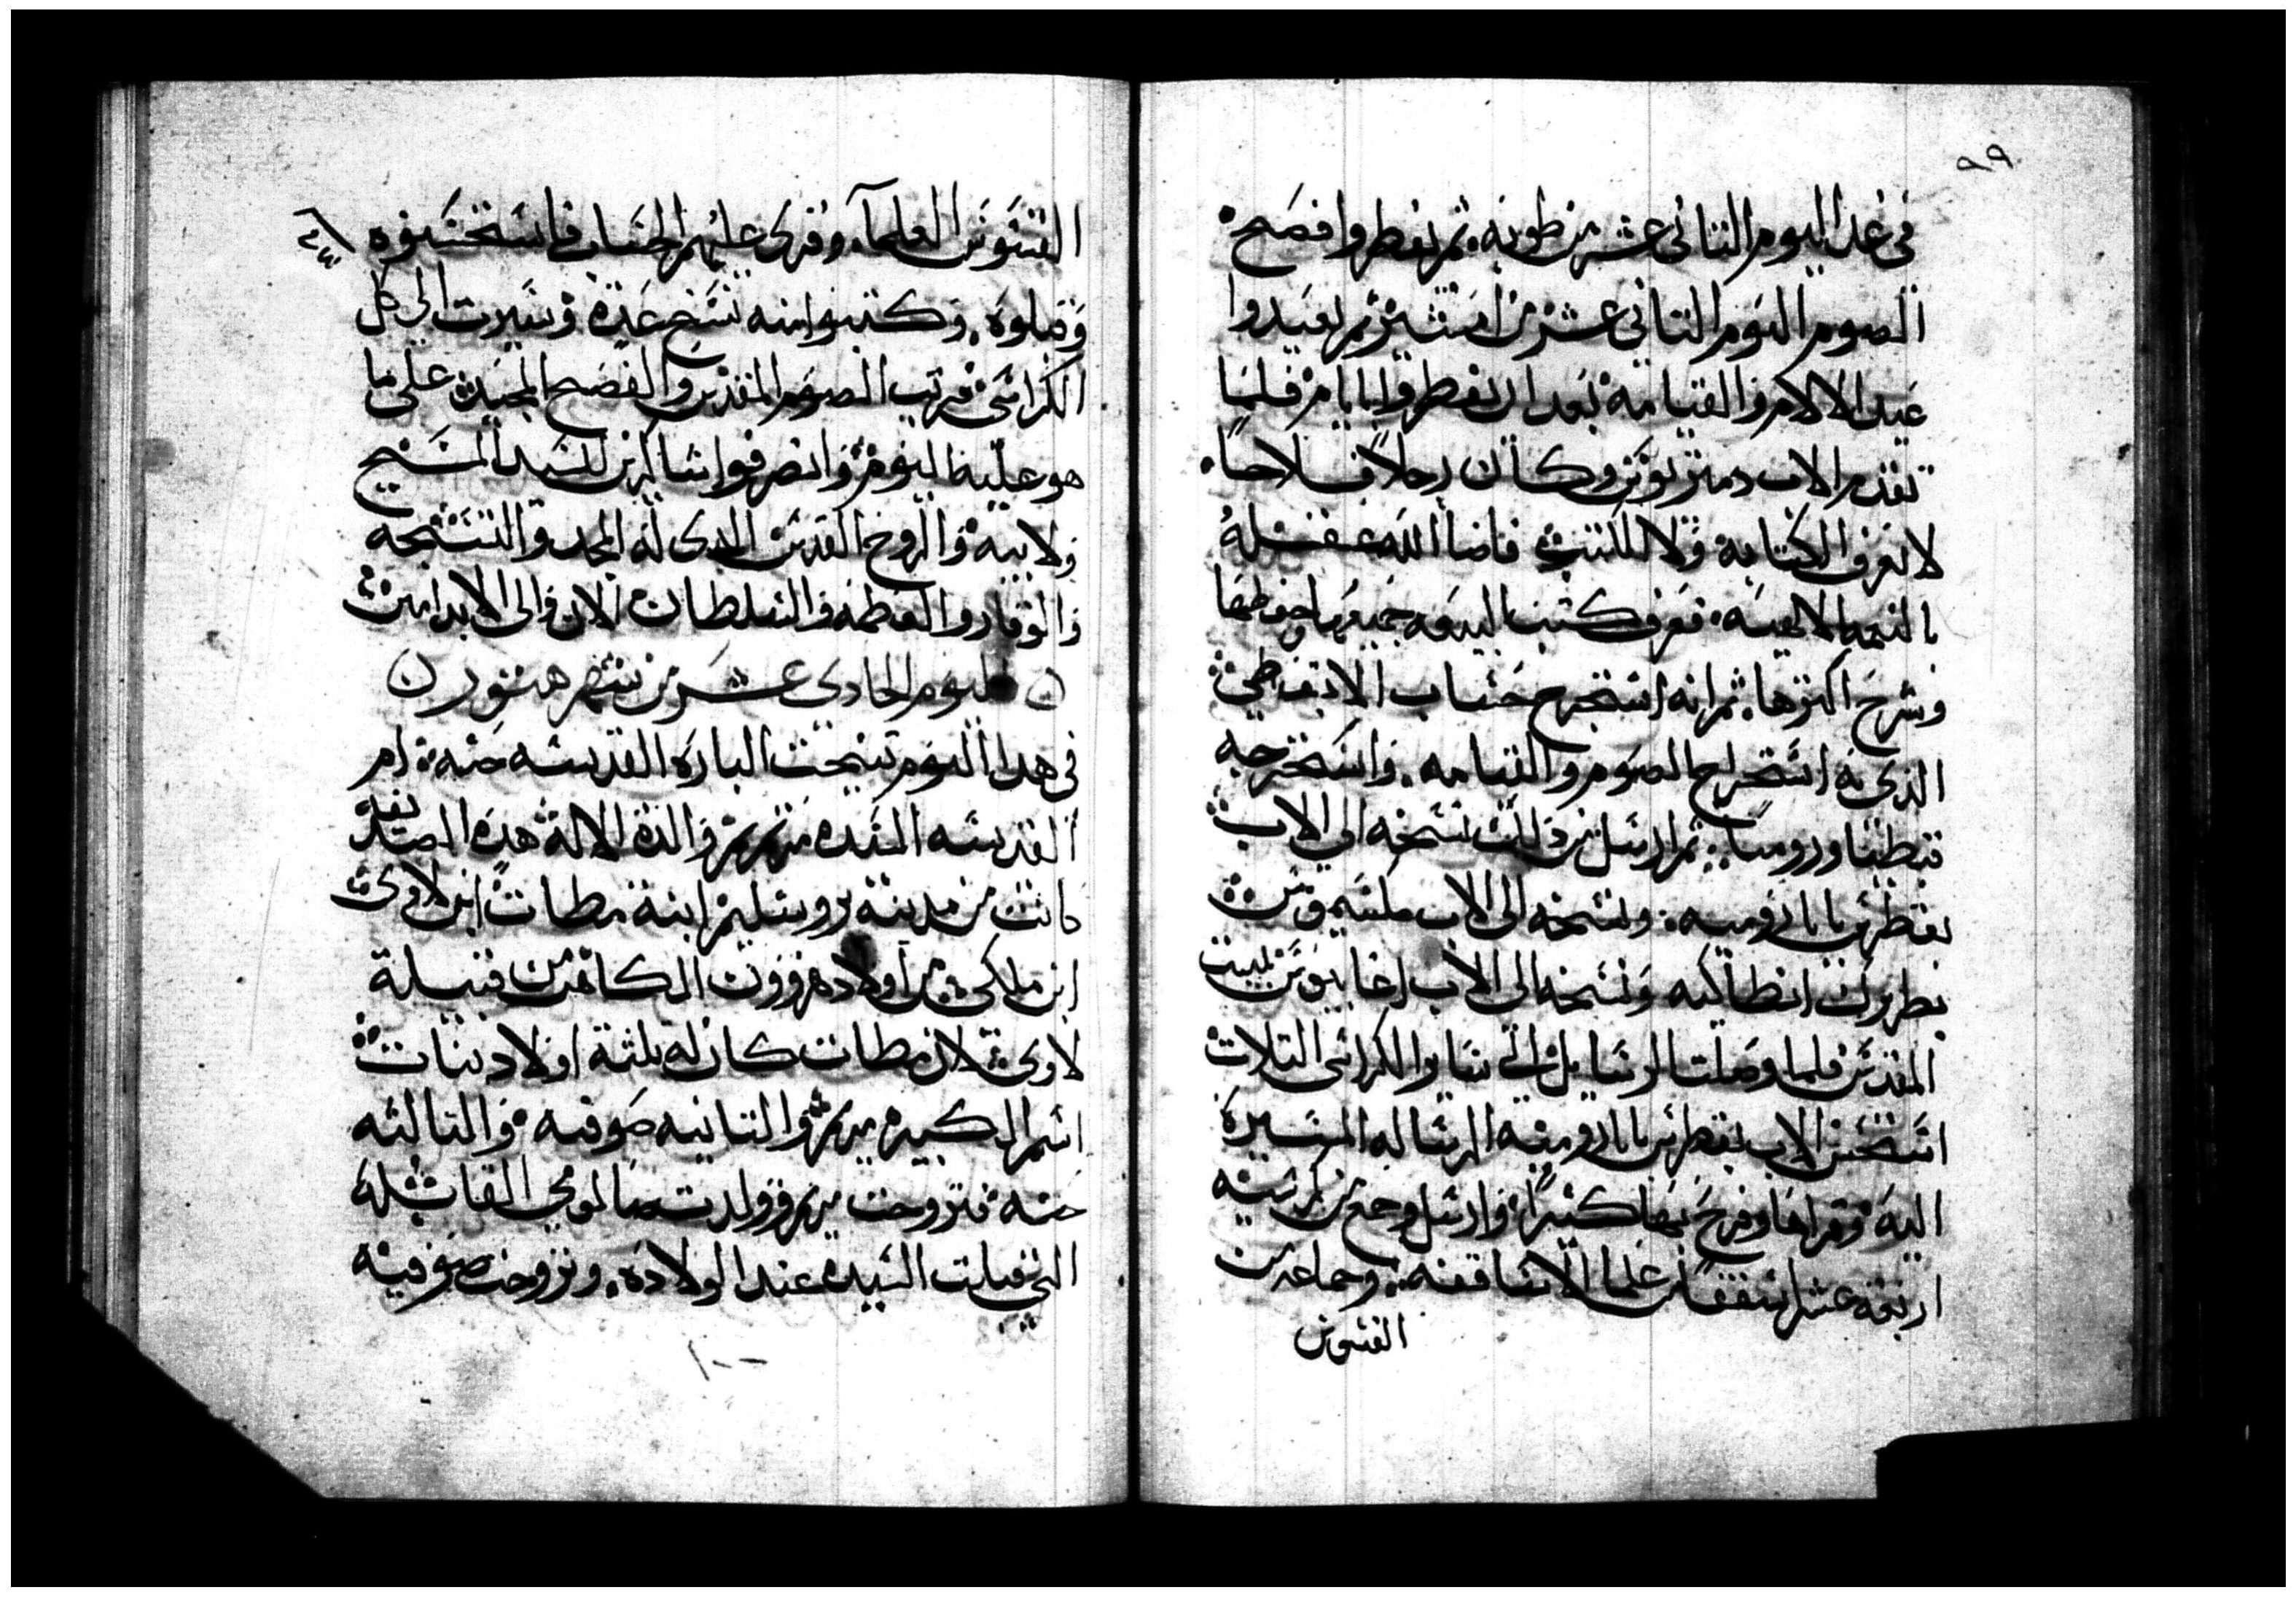 ٩٩
في غد اليوم الثاني عشر من طوبه. ثم يفطروا فصح
الصوم اليوم الثاني عشرين امشير ثم يعيدوا
عيد الالام والقيامة بعد ان يفطروا بايام فلما
تقدم الاب دمتريوس وكان رجلاً فلاحاً
لا يعرف الكتابه ولا الكتب فاضا الله عقله
بالنعمه الالهيه. فعرف كتب البيعه جميعها وحفظها
وشرح اكثرها. ثم انه استخرج حساب الابقطي
الذي به استخراج الصوم والقيامه. واستخرجه
قبطيا وروميا. ثم ارسل من ذلك نسخه الي الاب
بقطر بابا روميه. ونسخه الى الاب مكسيموس
بطريرك انطاكيه ونسخه الى الاب اغابيوس ببيت
المقدس فلما وصلت الرسايل الي بقاوا الكراسي الثلاث
استحسن الاب بقطر بابا روميه الرساله المسيرة
اليه وقراها وفرح بها كثيراً. وارسل وجمع من كرسيه
اربعة عشر اسقفا من علما الاساقفه. وجماعه من
القسوس
القسوس العلمآ. وقرى عليهم الحساب فاستحسنوه
وقبلوه. وكتبوا منه نسخ عدة وسيرت الي كل
الكراسي فرتب الصوم المقدس والفصح المجيد على ما
هو عليه اليوم وانصرفوا شاكرين للسيد المسيح
ولابيه والروح القدس الذي له المجد والتسبحه
والوقار والعظمه والسلطان الان والى الابد امين
اليوم الحادي عشر من شهر هتور
في هذا اليوم تنيحت الباره القديسه حنه. ام
القديسه السيده مرتمريم والدة الاله هده الصديقه
كانت من مدينة يروشليم ابنة مطات ابن لاوي
ابن ملكي من اولاد هرون الكاهن من قبيلة
لاوي لان مطات كان له ثلثة اولاد بنات
اسم الكبيره مريم والثانيه صوفيه والثالثه
حنه فتزوجت مريم وولدت صالومي القابله
التي قبلت السيده عند الولادة. وتزوجت صوفيه
١٠٠